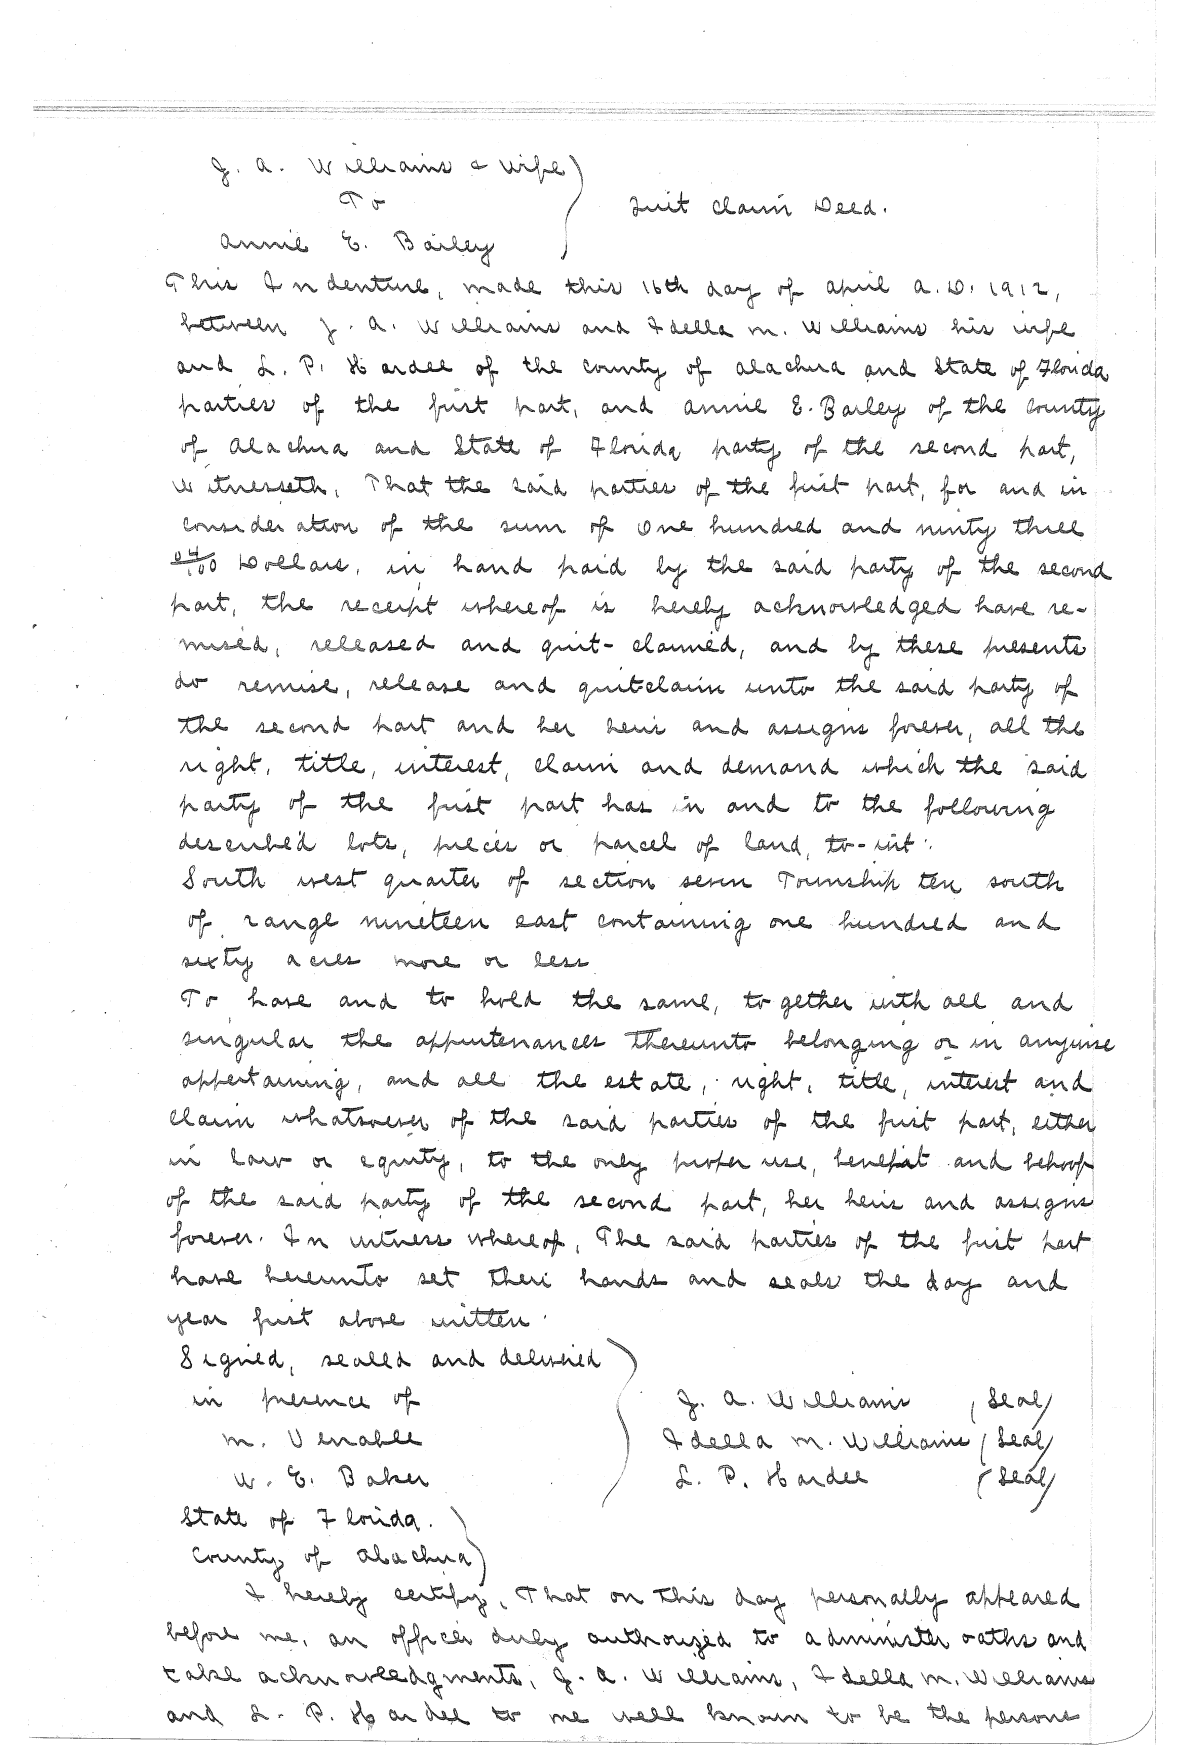 J. A. Williams & Wife
To
Quit Claim Deed.
Annie E. Bailey
This Indenture, made this 16th day of April A.D. 1912,
between J. A. Williams and Idella M. Williams his wife
and L. P. Hardee of the County of Alachua and State of Florida
parties of the first part, and Annie E. Bailey of the County
of Alachua and State of Florida party of the second part,
Witnesseth, That the said parties of the first part, for and in
consideration of the sum of One hundred and ninty three
04/100 Dollars, in hand paid by the said party of the second
part, the receipt whereof is hereby acknowledged have re-
mised, released and quit-claimed, and by these presents
do remise, release and quitclaim unto the said party of
the second part and her heirs and assigns forever, all the
right, title, interest, claim and demand which the said
party of the first part has in and to the following
described lots, pieces or parcel of land, to-wit:
South west quarter of section seven Township ten south
of range nineteen east containing one hundred and
sixty acres more or less
To have and to hold the same, together with all and
singular the appurtenances thereunto belonging or in anywise
appertaining, and all the estate, right, title, interest and
claim whatsoever of the said parties of the first part, either
in law or equity, to the only proper use, benefit and behoof
of the said party of the second part, her heirs and assigns
forever. In witness whereof, The said parties of the first part
have hereunto set their hands and seals the day and
year first above written.
Signed, sealed and delivered
in presence of J. A. Williams (Seal)
M. Venable Idella M. Williams (Seal)
W. E. Baker L. P. Hardee (Seal)
State of Florida.
County of Alachua
I hereby certify, That on this day personally appeared
before me, an officer duly authorized to administer oaths and
take acknowledgments, J. A. Williams, Idella M. Williams
and L. P. Hardee to me well known to be the persons